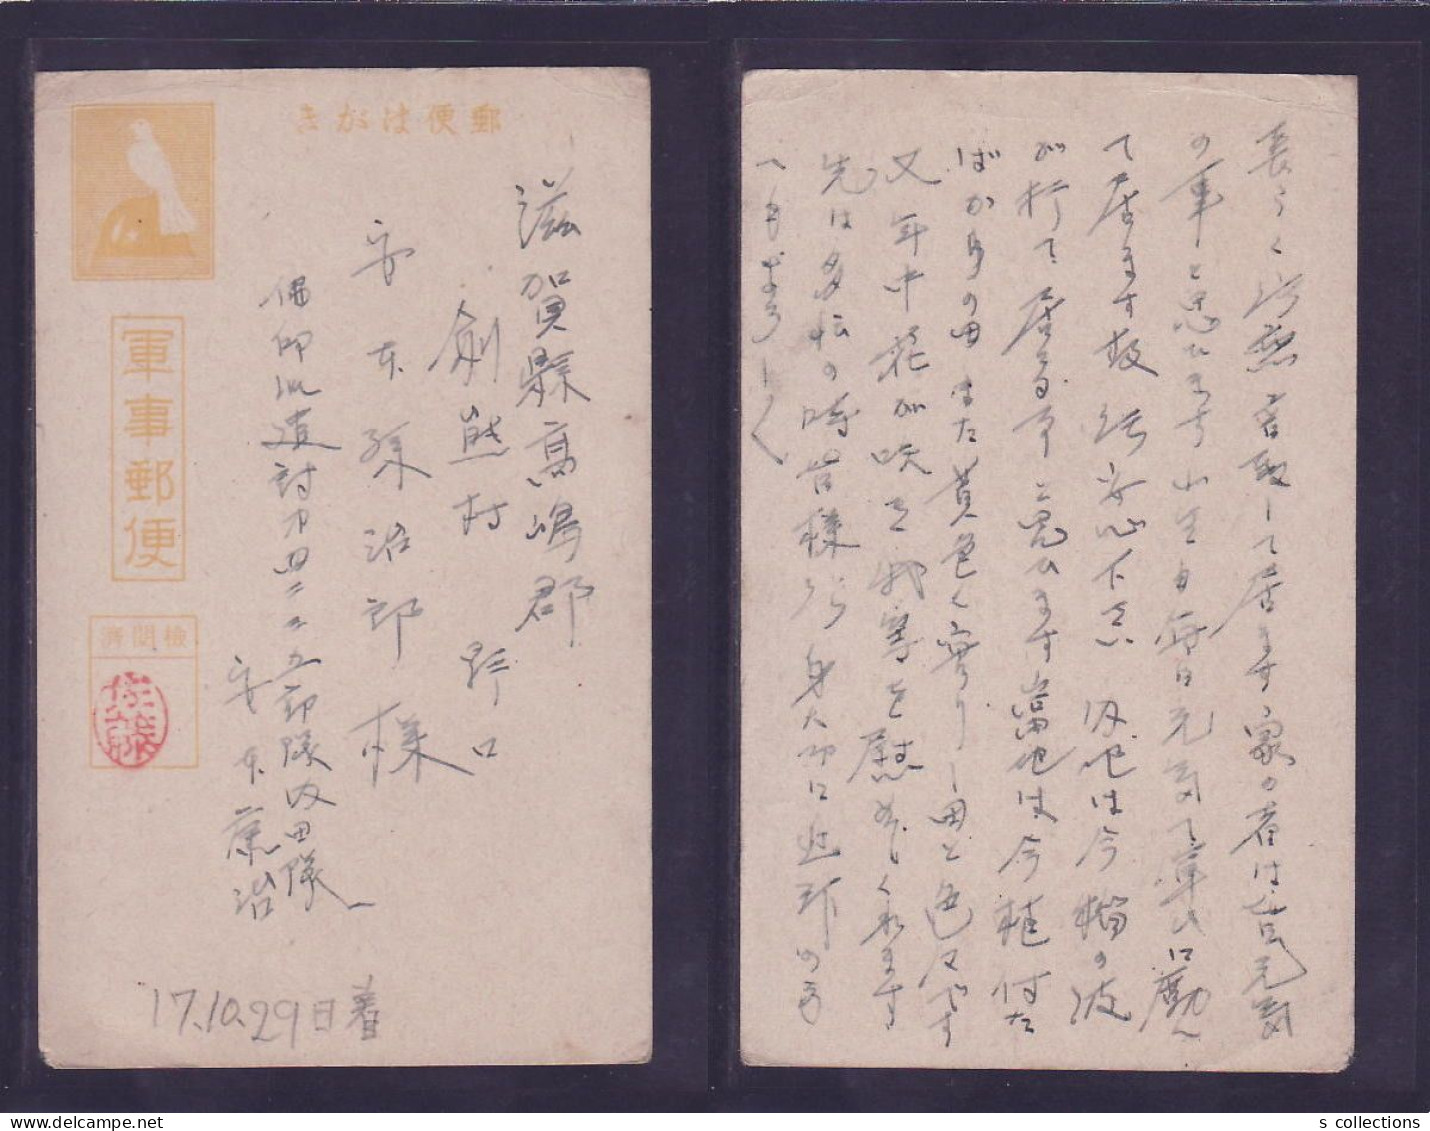 郵便はがき
軍事郵便
検閲済
佐藤
滋賀縣高嶋郡
剣熊村 野口
安本孫治郎様
佛印派遣討第四二三五部隊内田隊
安本 治
17.10.29日着
長らく御無音致して居ます 家の者は
の事と思ひます 小生も毎日元気で軍務に励ん
で居ます故 御安心下さい 内地は今稲の波
が打って居る事と思ひます 當地は今植付た
ばかりの田 又 黄色く 田と色々です
又年中花が咲き我等を慰めてくれます
先は多忙の時皆様御身大切に